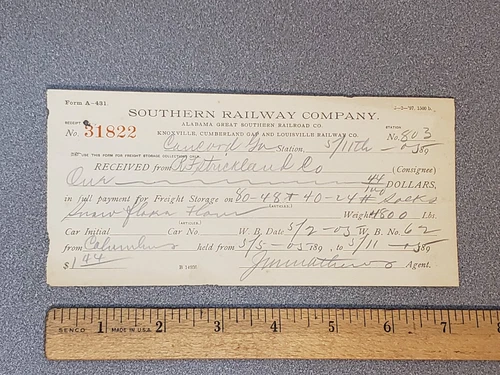 Form A—431.
SOUTHERN RAILWAY COMPANY.
ALABAMA GREAT SOUTHERN RAILROAD CO.
KNOXVILLE, CUMBERLAND GAP AND LOUISVILLE RAILWAY CO.
RECEIPT No. 31822
STATION No. 803
Concord Ga Station, 5/11th — 03 189
USE THIS FORM FOR FREIGHT STORAGE COLLECTIONS ONLY.
RECEIVED from R F Strickland Co (Consignee)
One 44/100 DOLLARS,
in full payment for Freight Storage on 80-48# 40-24# Sacks
(ARTICLES.)
Snow Flour Weight 4800 Lbs.
(ARTICLES.)
Car Initial Car No. W. B. Date 5/2—03 W. B. No. 62
from Columbus held from 5/5—03 189 , to 5/11 — 03 189
$1 44 Agent.
SENCO 1 MADE IN U.S.A. 2 3 4 5 6 7